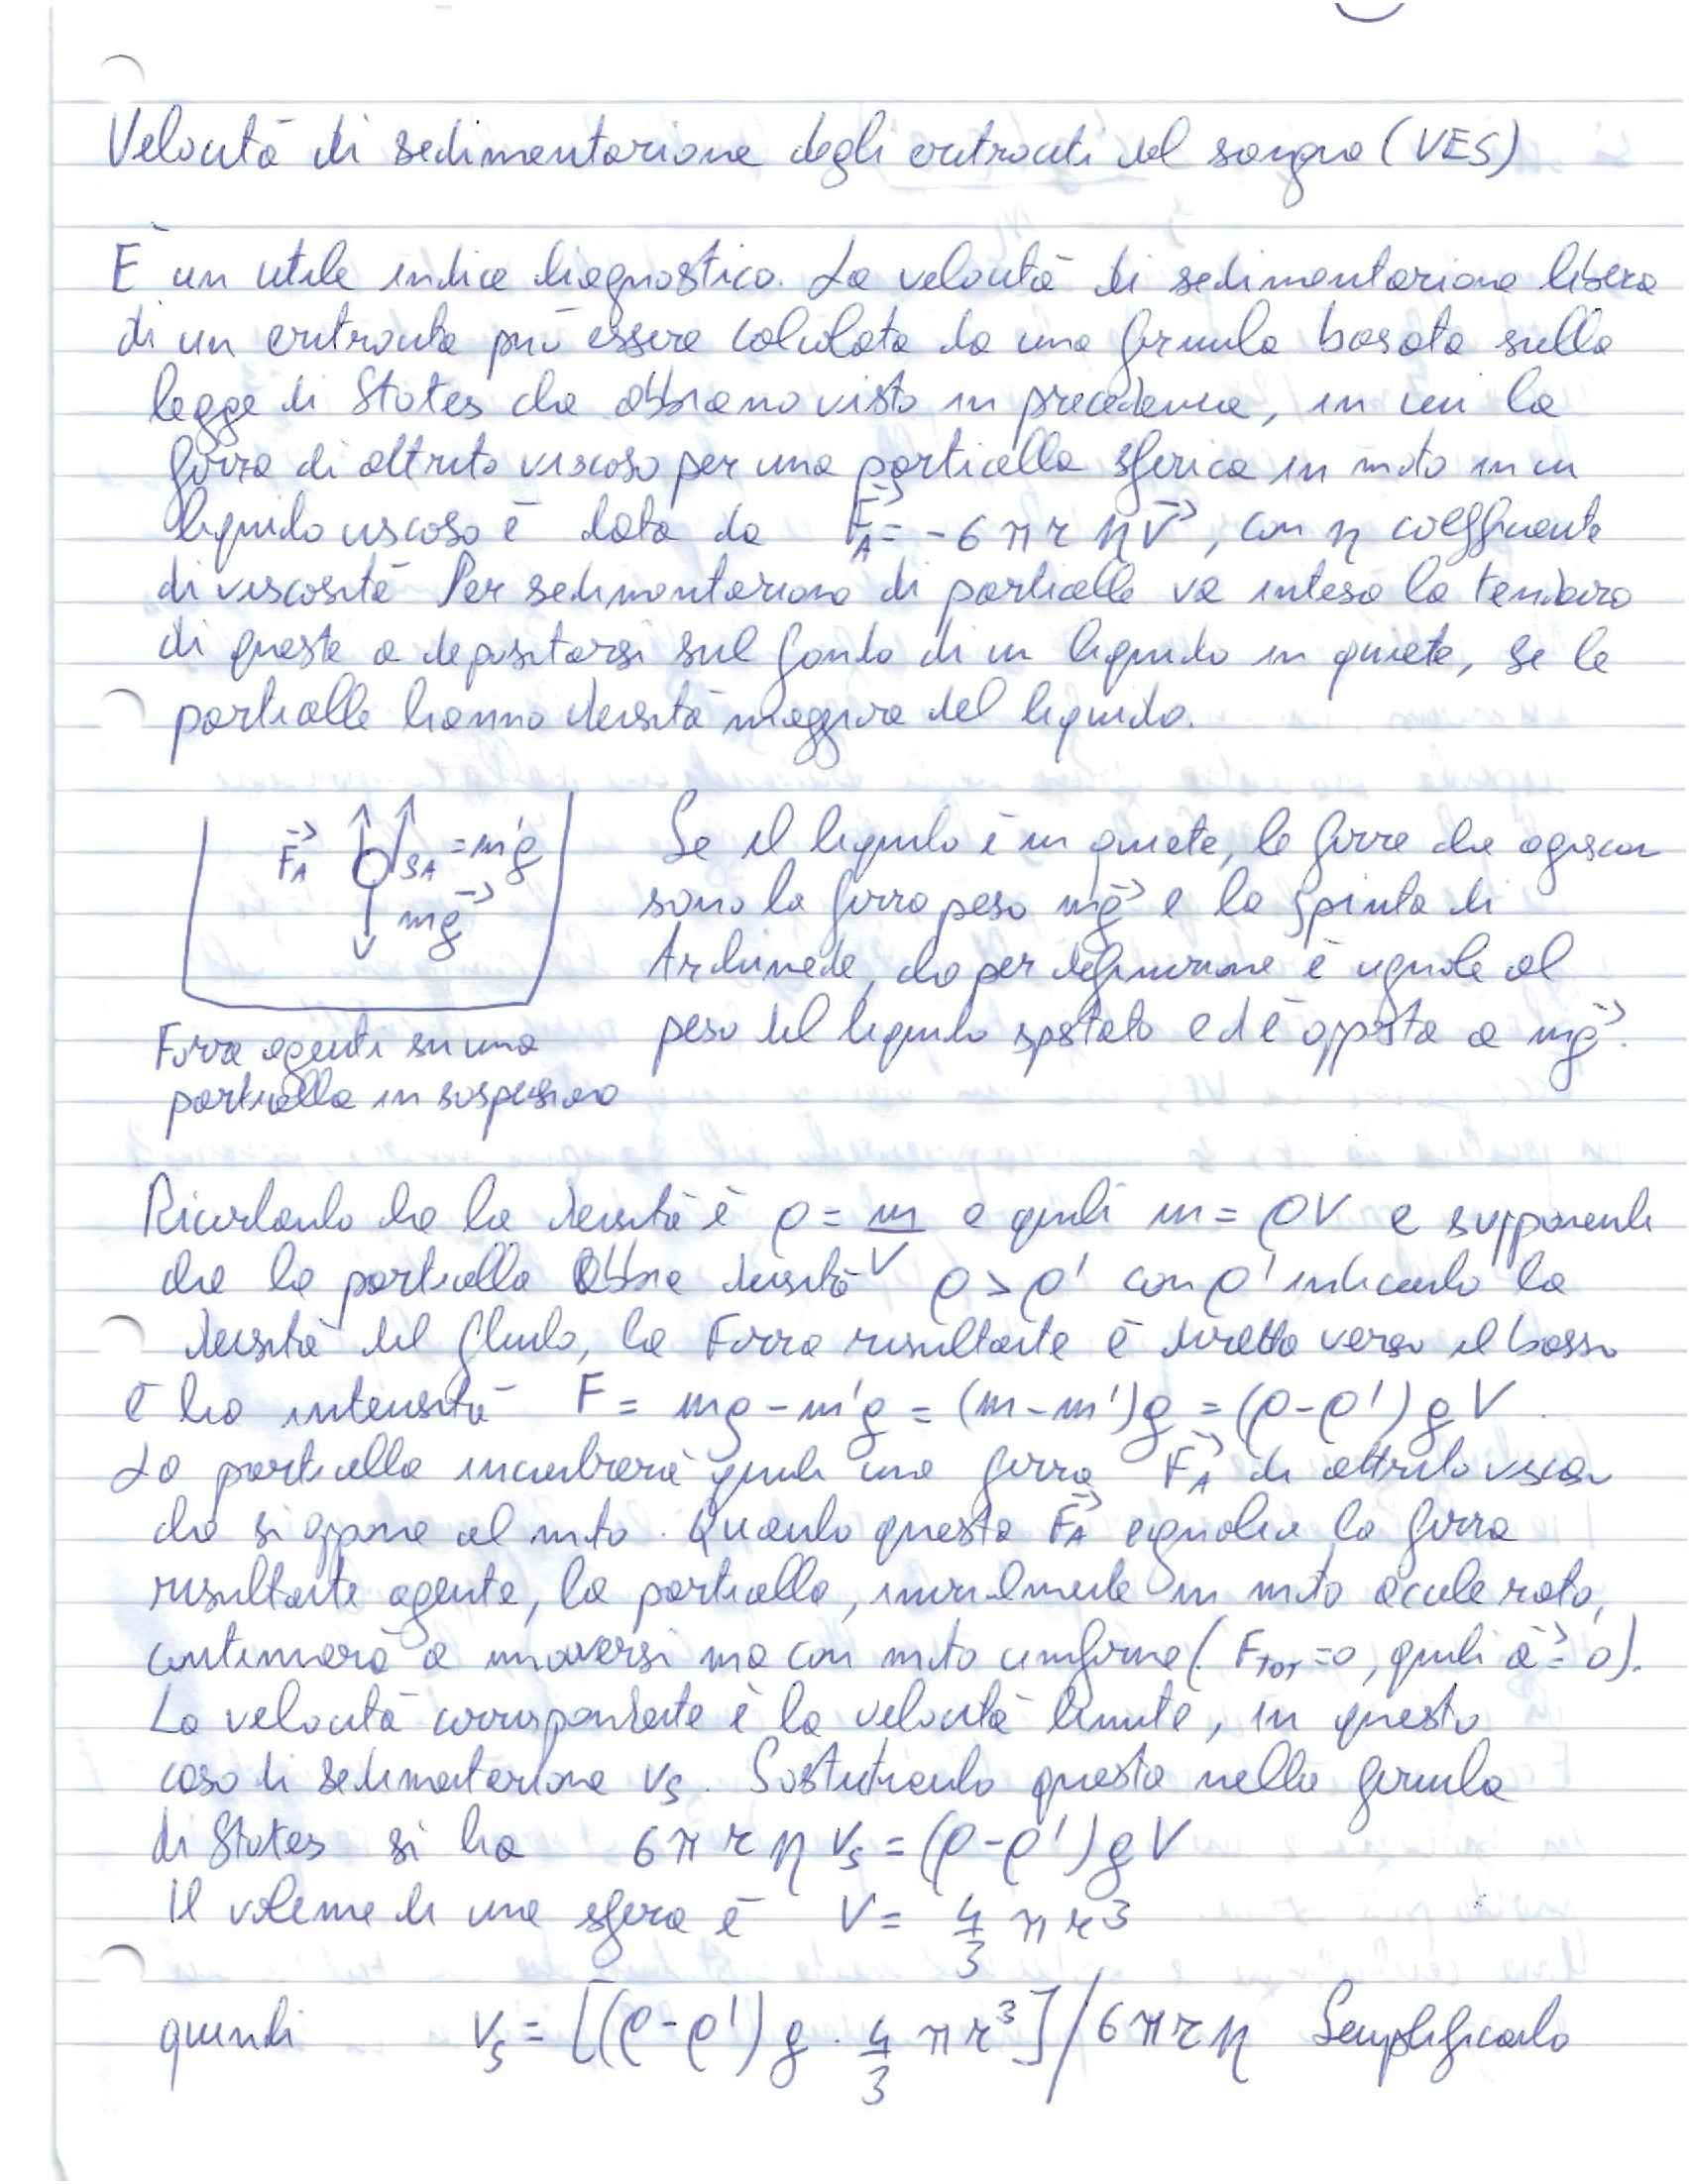 Velocità di sedimentazione degli eritrociti del sangue (VES)
È un utile indice diagnostico. La velocità di sedimentazione libera
di un eritrocita può essere calcolata da una formula basata sulla
legge di Stokes che abbiamo visto in precedenza, in cui la
forza di attrito viscoso per una particella sferica in moto in un
liquido viscoso è data da F⃗_A = -6πrηv⃗, con η coefficiente
di viscosità Per sedimentazione di particelle va intesa la tendenza
di queste a depositarsi sul fondo di un liquido in quiete, se le
particelle hanno densità maggiore del liquido.
F⃗_A S_A = m'g
mg⃗
Forze agenti su una
particella in sospensione
Se il liquido è in quiete, le forze che agiscon
sono la forza peso mg⃗ e la spinta di
Archimede, che per definizione è uguale al
peso del liquido spostato ed è opposta a mg⃗.
Ricordando che la densità è ρ = m/V e quindi m = ρV e supponendo
che la particella abbia densità ρ > ρ' con ρ' indicando la
densità del fluido, la Forza risultante è diretta verso il basso
e ha intensità F = mg - m'g = (m - m')g = (ρ - ρ')gV.
La particella incontrerà quindi una forza F⃗_A di attrito viscoso
che si oppone al moto. Quando questa F⃗_A eguaglia la forza
risultante agente, la particella, inizialmente in moto accelerato,
continuerà a muoversi ma con moto uniforme (F_TOT = 0, quindi a⃗ = 0).
La velocità corrispondente è la velocità limite, in questo
caso di sedimentazione v_s. Sostituendo questa nella formula
di Stokes si ha 6πrηv_s = (ρ - ρ')gV
Il volume di una sfera è V = 4/3 πr³
quindi v_s = [(ρ - ρ')g · 4/3 πr³]/6πrη Semplificando